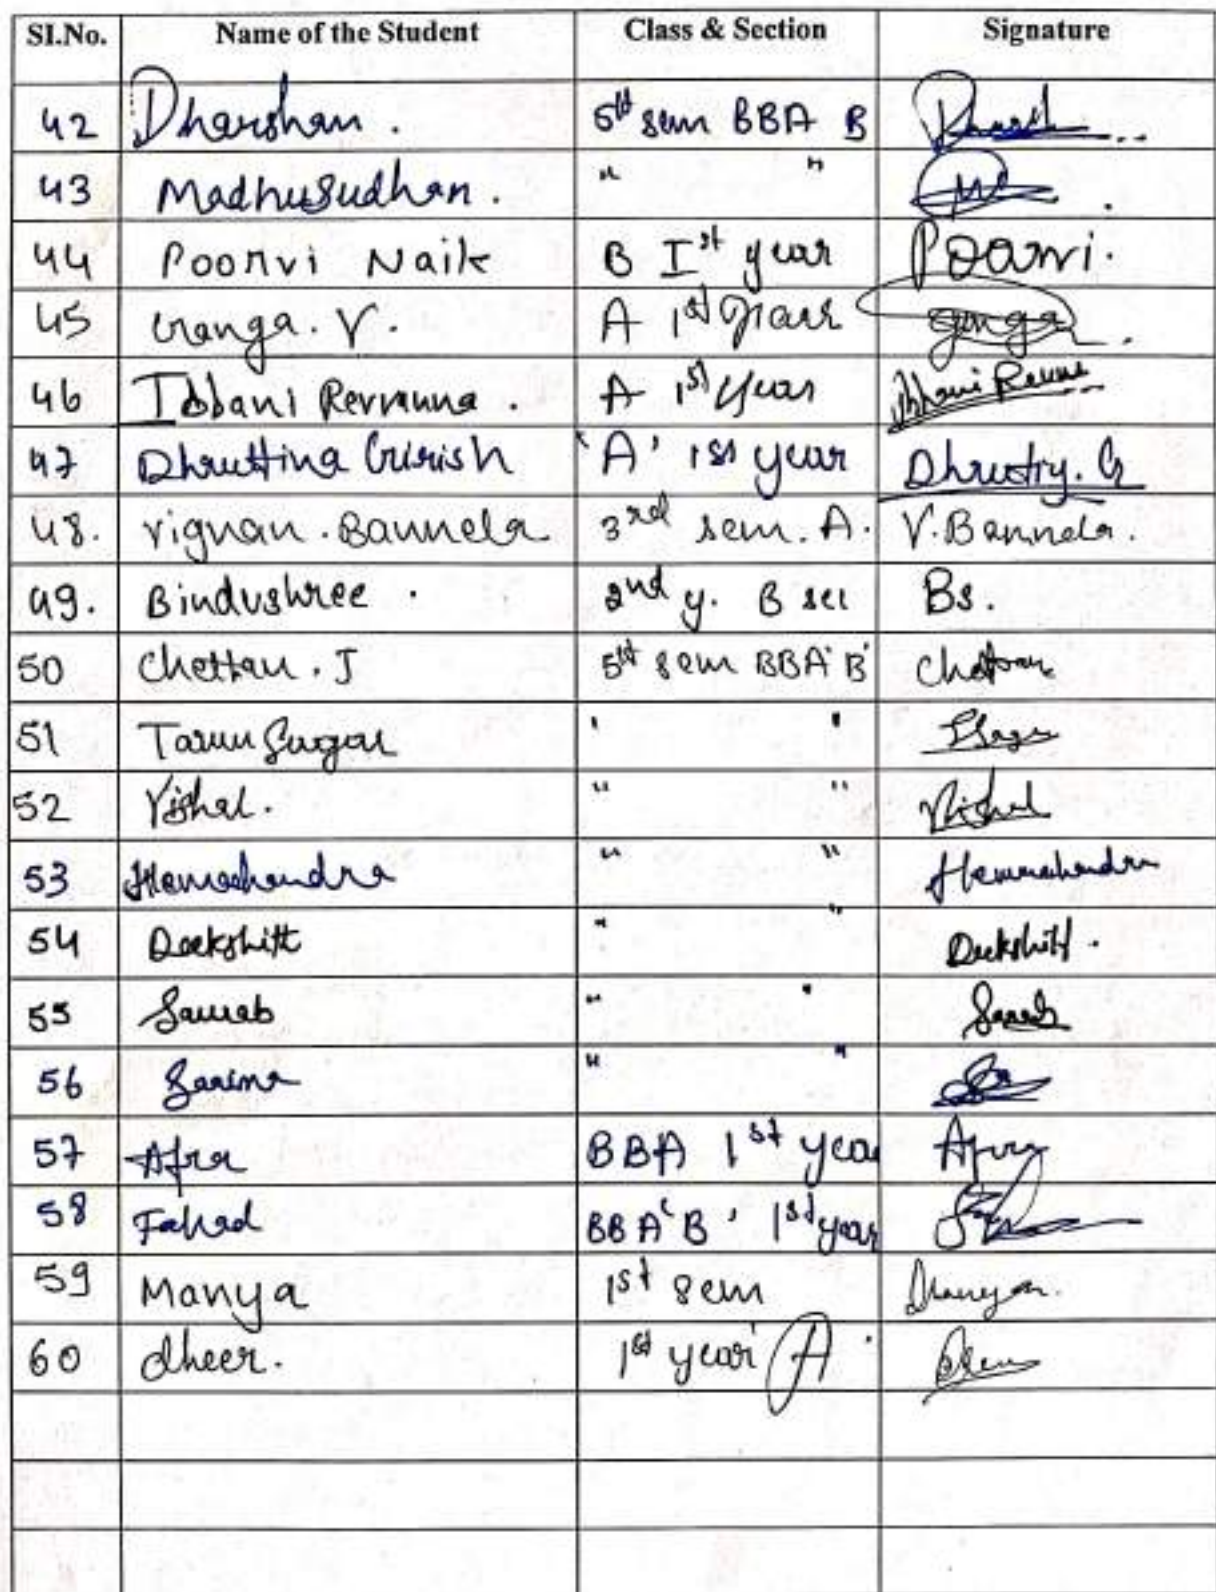 Sl.No. Name of the Student Class & Section Signature
42 Dharshan. 5th sem BBA B
43 Madhusudhan. " "
44 Poorvi Naik B Ist year Poorvi.
45 Ganga. V. A 1st year Ganga
46 Ibbani Revanna. A 1st year Ibbani Revanna
47 Dhruthina Girish 'A' 1st year Dhruthy. G
48. Vignan. Bannela 3rd sem. A. V. Bannela.
49. Bindushree. 2nd y. B sec Bs.
50 Chettan. J 5th sem BBA 'B' Chettan
51 Tarun Sagar " "
52 Vishal. " " Vishal
53 Hemachandra " " Hemachandra
54 Deekshitt " " Deekshitt.
55 Saurab " " Saurab
56 " "
57 Afra BBA 1st year Afra
58 Fahad BBA 'B' 1st year
59 Manya 1st sem
60 dheer. 1st year A